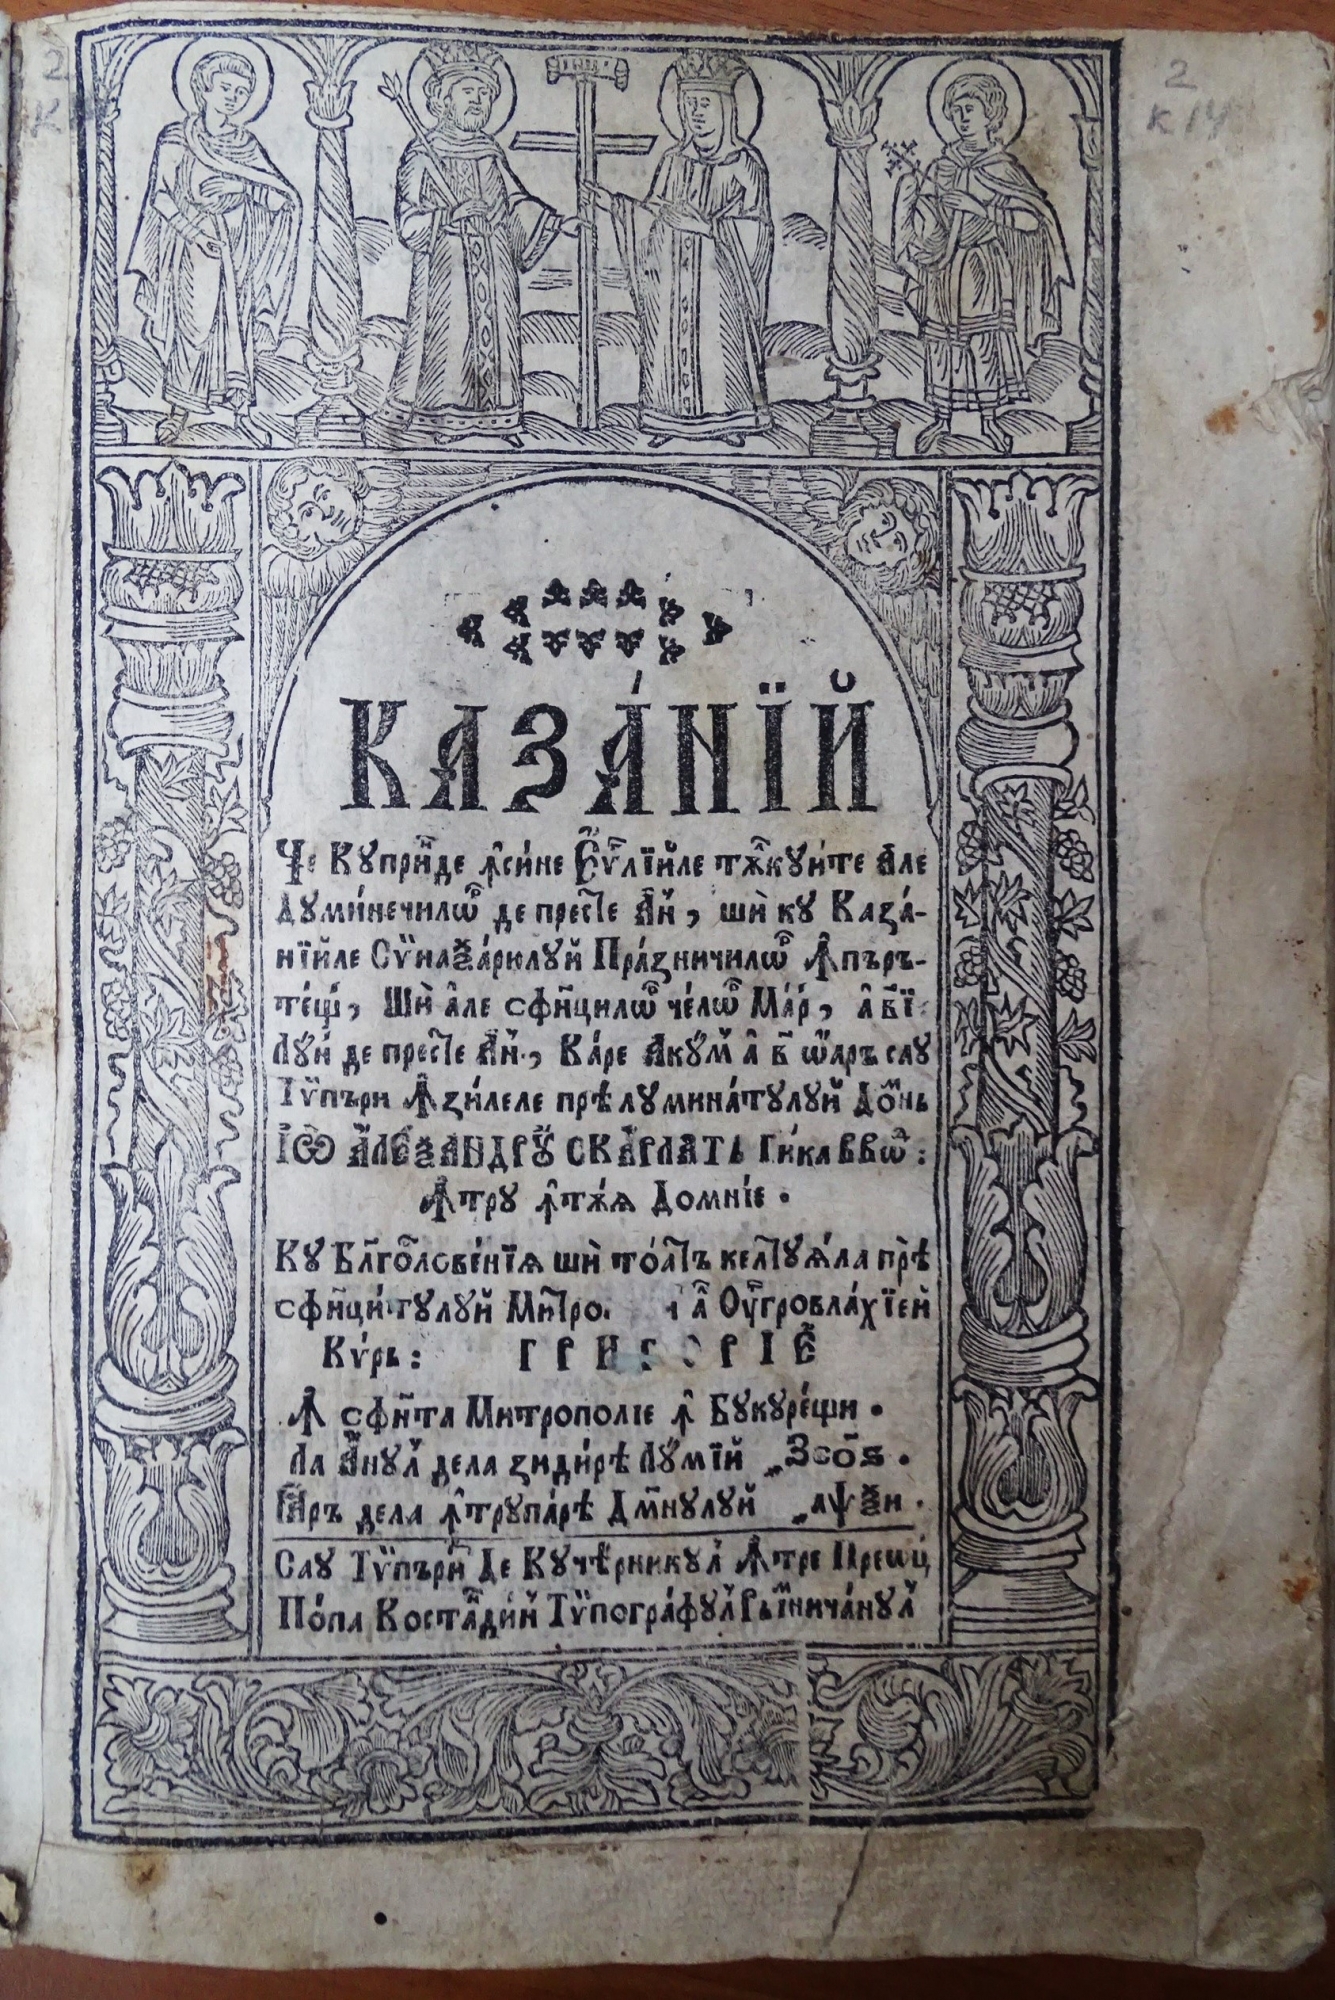 2
К 14
КАЗА́НЇЙ
Че Купри́нде ꙟ҆си́не Е҆ѵⷢ҇лїйле тѫлкуи́те Але
Думи́нечилѡⷬ҇ де престе А҆н҃, шѝ ку Каза́-
нїйле Сѵнаѯа́рюлуй Пра́зничилѡⷬ҇ Ꙟ҆пъръ-
те́щй, Шѝ а҆ле сфи҃нцилѡⷬ҇ че́лѡⷬ҇ Ма́рй, а҆ в҃ї
Лу́нй де престе А҆н҃, Ка́ре Аку́мꙋ а҆ в҃ ѡ҆а́ръ сау
Тѵпъри Ꙟ҆ зи́леле прѣлумина́тулуй До́мнь
І҆ѡ҃ А҆ЛЕѮАНДРꙊ СКАРЛАТЬ Ги́ка ВВѡⷣ҇:
Ꙟ҆тру ꙟ҆тѫ́ѧ Домнїе.
Ку Бл҃гослове́нїѧ шѝ то́атъ келтуѧ́ла прѣ̀
сфи҃нци́тулуй Митро. а҆ Оу҆гровла́хїей
Ки́рь: ГРИГОРІЕ
Ꙟ҆ сфи҃нта Митрополїе ꙟ҆ Букуре́щи.
Ла А҆нул дела зиди́рѣ Лу́мїй ҂Зсо҃ѕ.
Ꙗ҆ръ дела ꙟ҆трупа́рѣ Дмⷩ҇улуй ҂аѱѯи.
Сау Тѵпъри́т Де Куче́рникул Ꙟ҆тре Преѡц҃й
По́па Костанди́н Тѵпогра́фул Рымнича́нул